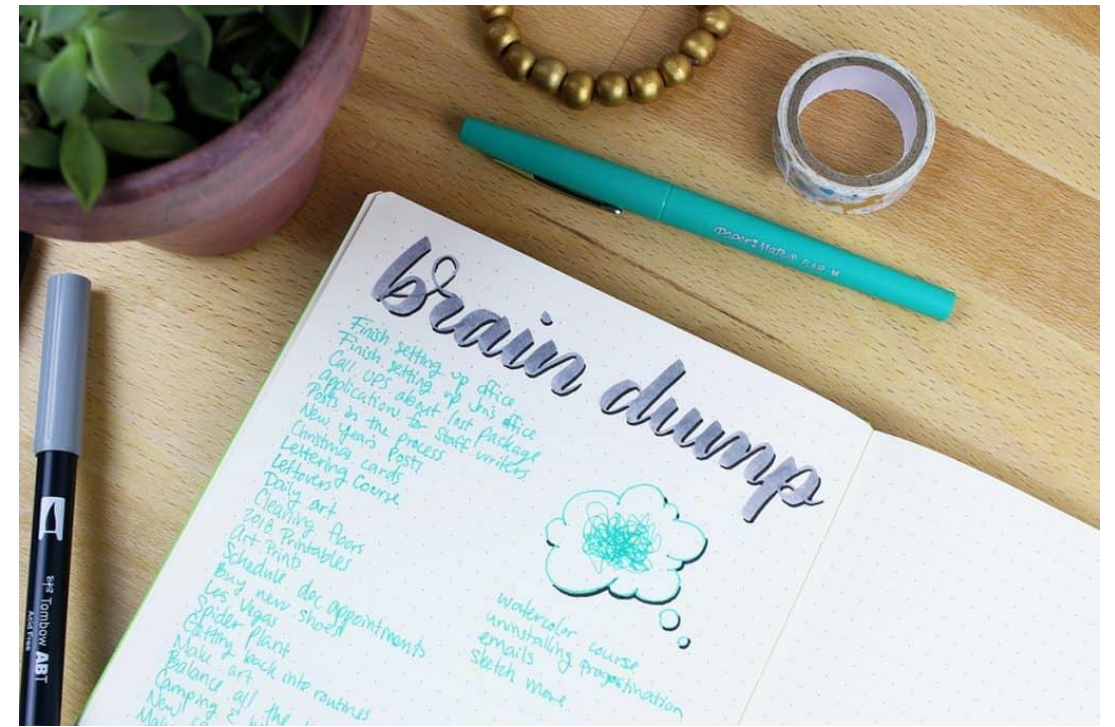 brain dump
Finish setting up office
Finish setting up Jin's office
Call UPS about lost package
Application for staff writers
Posts in the process
New Year's Posts
Christmas cards
Lettering Course
Leftovers
Daily art
Cleaning floors
2018 Printables
Art Prints
Schedule doc appointments
Buy new shoes
Las Vegas
Spider Plant
Getting back into routines
Make art
Balance all the
Camping &
New
Make
watercolor course
uninstalling procrastination
emails
sketch more
Paper Mate FLAIR M
Tombow ABT
Acid Free